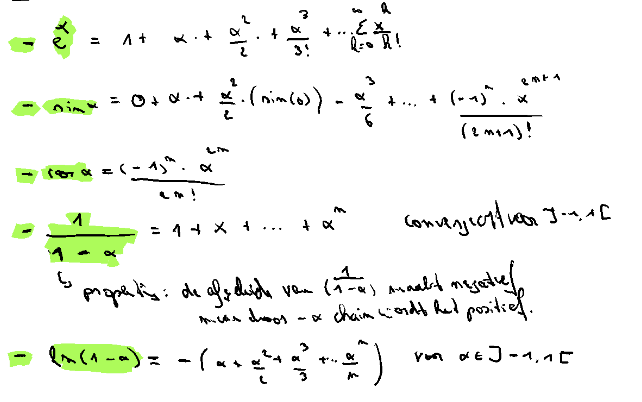 - e^x = 1 + x + x²/2 + x³/3! + ... ∞ Σ k=0 x^k/k!
- sin x = 0 + x + x²/2 · (sin(0)) - x³/6 + ... + (-1)^n · x^(2n+1) / (2n+1)!
- cos x = (-1)^n · x^(2n) / 2n!
- 1/(1-x) = 1 + x + ... + x^n convergeert voor ]-1,1[
↳ properties: de afgeleide van (1/(1-x)) maakt negatief
maar door -x chain wordt het positief.
- ln(1-x) = -(x + x²/2 + x³/3 + ... x^n/n) voor x ∈ ]-1,1[